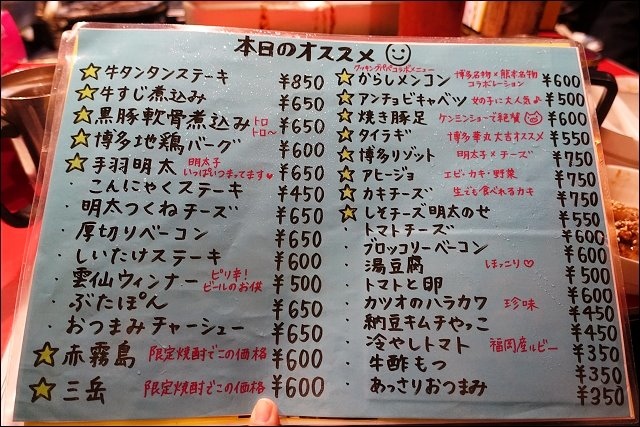 本日のオススメ
牛タンタンステーキ ¥850
牛すじ煮込み ¥650
黒豚軟骨煮込み トロトロ〜 ¥650
博多地鶏バーグ ¥600
手羽明太 明太子いっぱいつまってます ¥650
こんにゃくステーキ ¥450
明太つくねチーズ ¥650
厚切りベーコン ¥650
しいたけステーキ ¥600
雲仙ウィンナー ピリ辛!ビールのお供 ¥500
ぶたぽん ¥650
おつまみチャーシュー ¥650
赤霧島 限定焼酎でこの価格 ¥600
三岳 限定焼酎でこの価格 ¥600
クッキングパパコラボメニュー
からしメンコン 博多名物×熊本名物コラボレーション ¥600
アンチョビキャベツ 女の子に大人気♪ ¥500
焼き豚足 ケンミンショーで絶賛 ¥600
タイラギ 博多華丸大吉オススメ ¥550
博多リゾット 明太子×チーズ ¥750
アヒージョ エビ・カキ・野菜 ¥750
カキチーズ 生でも食べれるカキ ¥750
しそチーズ明太のせ ¥550
トマトチーズ ¥600
ブロッコリーベーコン ¥600
湯豆腐 ほっこり♡ ¥500
トマトと卵 ¥600
カツオのハラカワ 珍味 ¥450
納豆キムチやっこ ¥450
冷やしトマト 福岡産ルビー ¥350
牛酢もつ ¥350
あっさりおつまみ ¥350